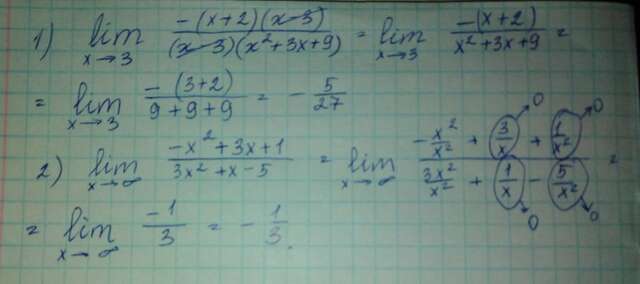 1) lim x→3 -(x+2)(x-3) / (x-3)(x²+3x+9) = lim x→3 -(x+2) / x²+3x+9 =
= lim x→3 -(3+2) / 9+9+9 = - 5/27
2) lim x→∞ -x²+3x+1 / 3x²+x-5 = lim x→∞ -x²/x² + 3/x →0 + 1/x² →0 / 3x²/x² + 1/x →0 - 5/x² →0 =
= lim x→∞ -1/3 = - 1/3.